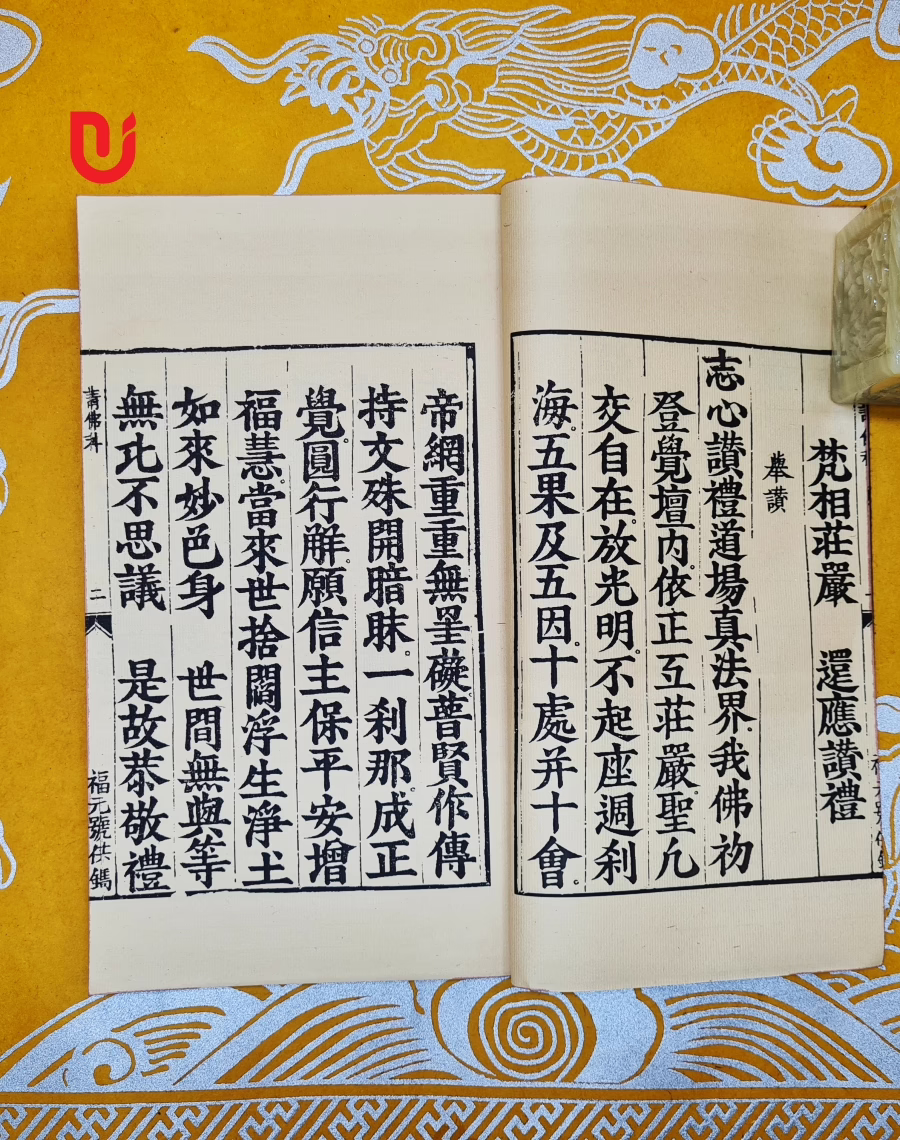 梵相莊嚴　還應讃禮
舉讃
志心讃禮道場真法界。我佛初
登覺壇內。依正互莊嚴聖凡
交自在。放光明。不起座週刹
海。五果及五因。十處并十會。
帝網重重無罣礙。普賢作傳
持文殊開暗昧。一刹那。成正
覺。圓行解。願信主保平安增
福慧。當來世捨閻浮生淨土
如來妙色身　世間無與等
無比不思議　是故恭敬禮
請佛科
二
福元號供鐫